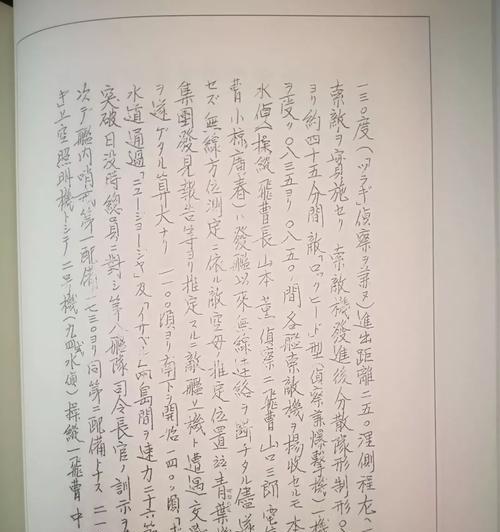 一三〇度(「ツラギ」偵察ヲ兼ヌ)進出距離二五〇浬側程左一
索敵ヲ實施セリ 索敵機發進後分散隊形制形
ヨリ約四十五分間敵「ロッキード」型(偵察兼爆撃機)一機
ヲ受ク 〇八三五ヨリ〇八五〇ノ間各艦索敵機ヲ揚收セルモ本
水偵(操縦飛曹長山本 薫 偵察二飛曹山口三郎 電信
曹小椋康春)ハ發艦以來無線連絡ヲ断チタル儘
セズ無線方位測定ニ依ル敵空母ノ推定位置竝青葉機
集團發見報告等ヨリ推定スルニ敵艦上機ト遭遇交
ヲ遂ゲタル算大ナリ 一一〇〇頃ヨリ南下ヲ開始一四〇〇頃
水道通過「ニュージョージヤ」及「イサベル」島間ヲ速力二十六節
突破日没時總員ニ對シ第八艦隊司令長官ノ訓示ヲ
次デ艦内哨戒第一配備一七三〇ヨリ同第二配備トス 二一
キ上空照明機トシテ二号機(九四式水偵)操縦一飛曹 中